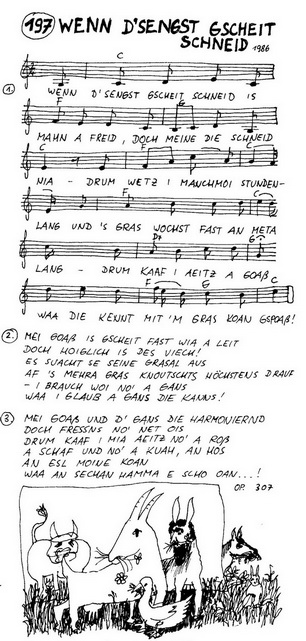 197 WENN D'SENGST GSCHEIT
SCHNEID 1986
C
1. WENN D'SENGST GSCHEIT SCHNEID IS
F G
MAHN A FREID, DOCH MEINE DIE SCHNEID
C F C
NIA - DRUM WETZ I MANCHMOI STUNDEN-
F
LANG UND 'S GRAS WOCHST FAST AN META
D7 G
LANG - DRUM KAAF I AEITZ A GOAß
F G C
WAA DIE KENNT MIT 'M GRAS KOAN GSPOAß!
2. MEI GOAß IS GSCHEIT FAST WIA A LEIT
DOCH HOIGLICH IS DES VIECH!
ES SUACHT SE SEINE GRASAL AUS
AF 'S MEHRA GRAS KNOUTSCHTS HÖCHSTENS DRAUF
- I BRAUCH WOI NO' A GANS
WAA I GLAUB A GANS DIE KANNS!
3. MEI GOAß UND D' GANS DIE HARMONIERND
DOCH FRESSNS NO' NET OIS
DRUM KAAF I MIA AEITZ NO' A ROß
A SCHAF UND NO' A KUAH, AN HOS
AN ESL MOINE KOAN
WAA AN SECHAN HAMMA E SCHO OAN...!
OP. 307